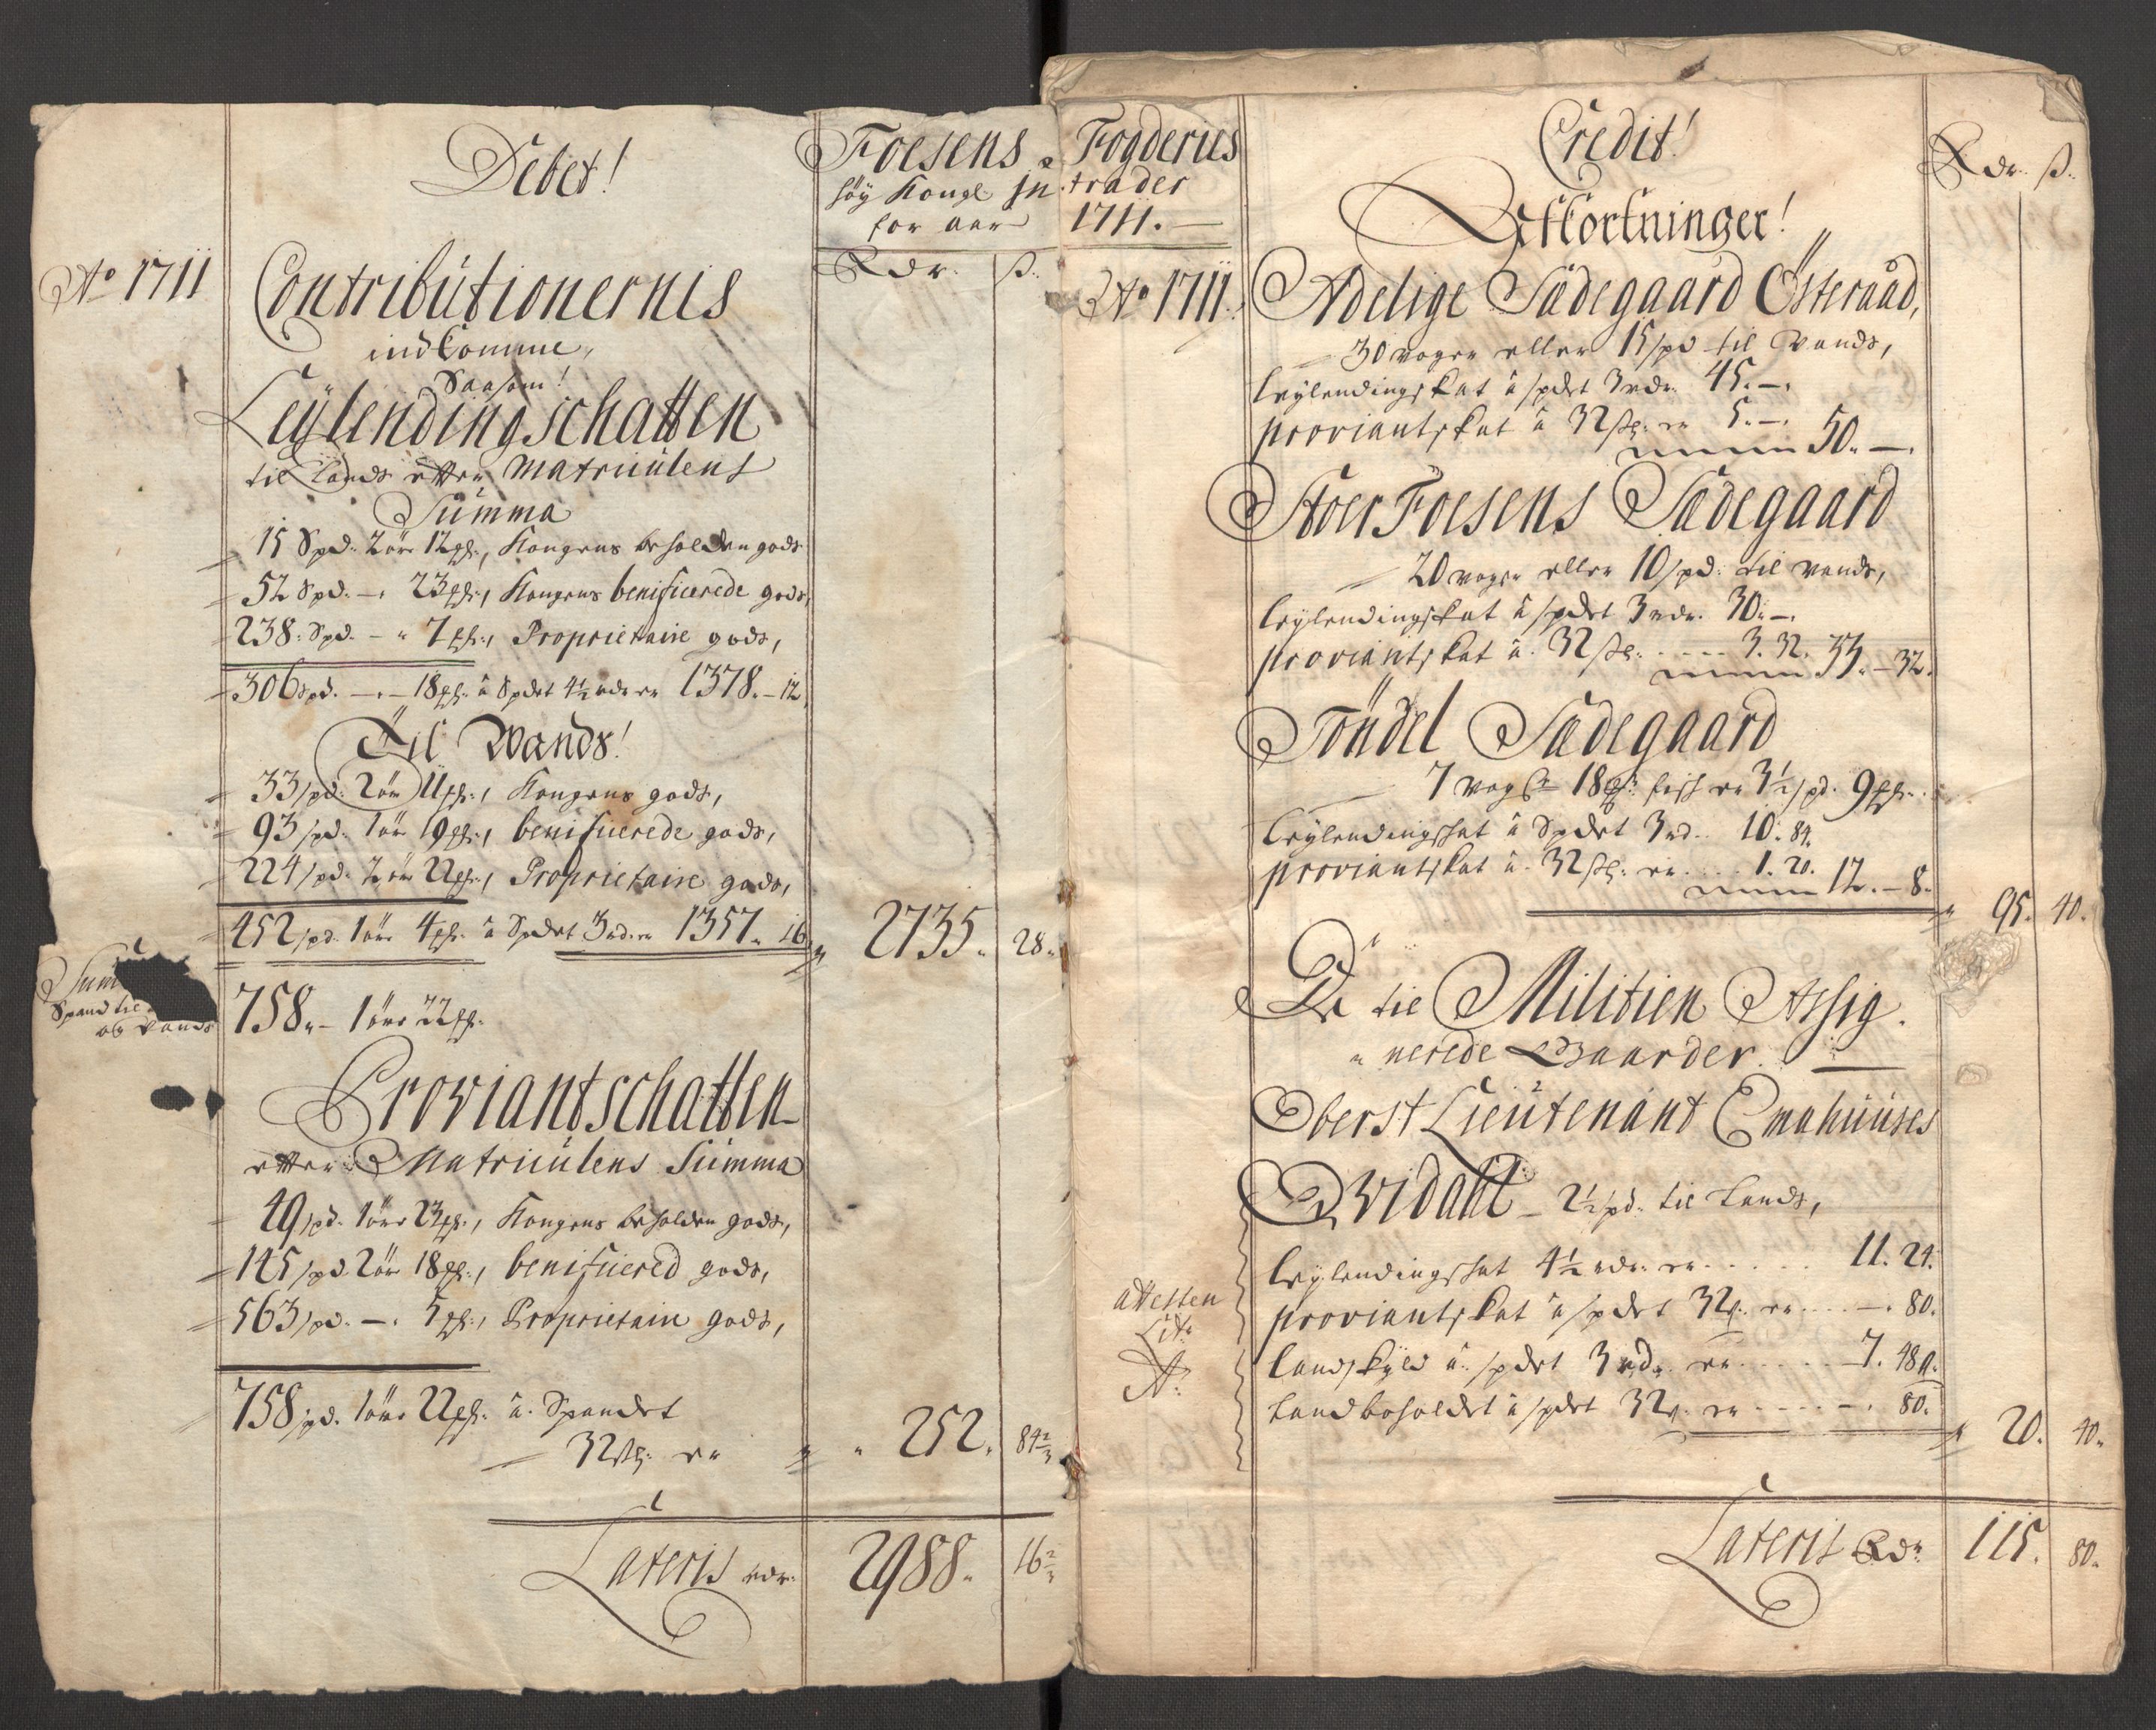 Debet!
Foesens
høy Kongl In
for aar
Rdr. ß.
Ao 1711
Contributionernis
indkomme,
Saasom!
Leÿlendingschatten
til Lands efter Matriculens
Summa
15 Spd. 2 ör 12 ß., Kongens beholden gods
52 Spd. - 23 ß., Kongens benificerede gods,
238 Spd. - 7 ß., Proprietaire gods,
306 Spd. - 18 ß. à Spdet 4½ rdr er 1378. - 12
Til Wands!
33 spd. 2 ör 11 ß., Kongens gods,
93 spd. 1 ör 19 ß., benificerede gods,
224 spd. 2 ör 22 ß., Proprietaire gods,
452 spd. 1 ör 4 ß. à Spdet 3 rdr er 1357. 16 2735. 28.
Sum
Spand til
og Vands
758. - 1 ör 22 ß.
Proviantschatten
efter Matriculens Summa
49 spd. 1 ör 23 ß., Kongens beholden gods,
145 spd 2 ör 18 ß., benificered gods,
563 spd. - 5 ß., Proprietaire gods,
758 spd. 1 ör 22 ß. à Spandet
32 ß. er 252. 84⅔
Lateris rdr. 2988. 16⅔
Fogderies
trader
1711.
Credit!
Rdr. ß.
Afkortninger!
Ao 1711.
Adelige Sædegaard Østeraad,
30 voger eller 15 spd til Vands,
Leylendingskat à spdet 3 rdr. 45. -.
proviantskat à 32 ß. er 5. -. 50. -.
Stoer Foesens Sædegaard
20 voger eller 10 spd. til vands,
Leylendingskat à spdet 3 rdr. 30. -.
proviantskat à 32 ß. 3. 32. 33. - 32.
Töndel Sædegaard
7 vog 18 fisk er 3½ spd. 9 ß.
Leylendingskat à Spdet 3 rd. 10. 84.
proviantskat à 32 ß. er 1. 20. 12. - 8. 95. 40.
De til Militien Assig-
nerede Gaarder.
Oberst Lieutenant Emahuuses
Qvidahl - 2½ pd. til Lands,
Leylendingskat 4½ rdr. er 11. 24.
proviantskat à spdet 32 ß. er -. 80.
attesten
Litr
A.
Landskyld à spdet 3 rdr er 7. 48 ß.
Landboholdet à spdet 32 ß. er -. 80. 20. 40.
Lateris Rdr 115. 80.